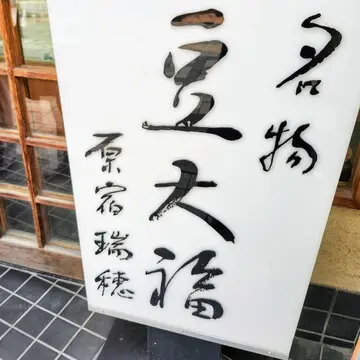 名物
豆大福
原宿瑞穂